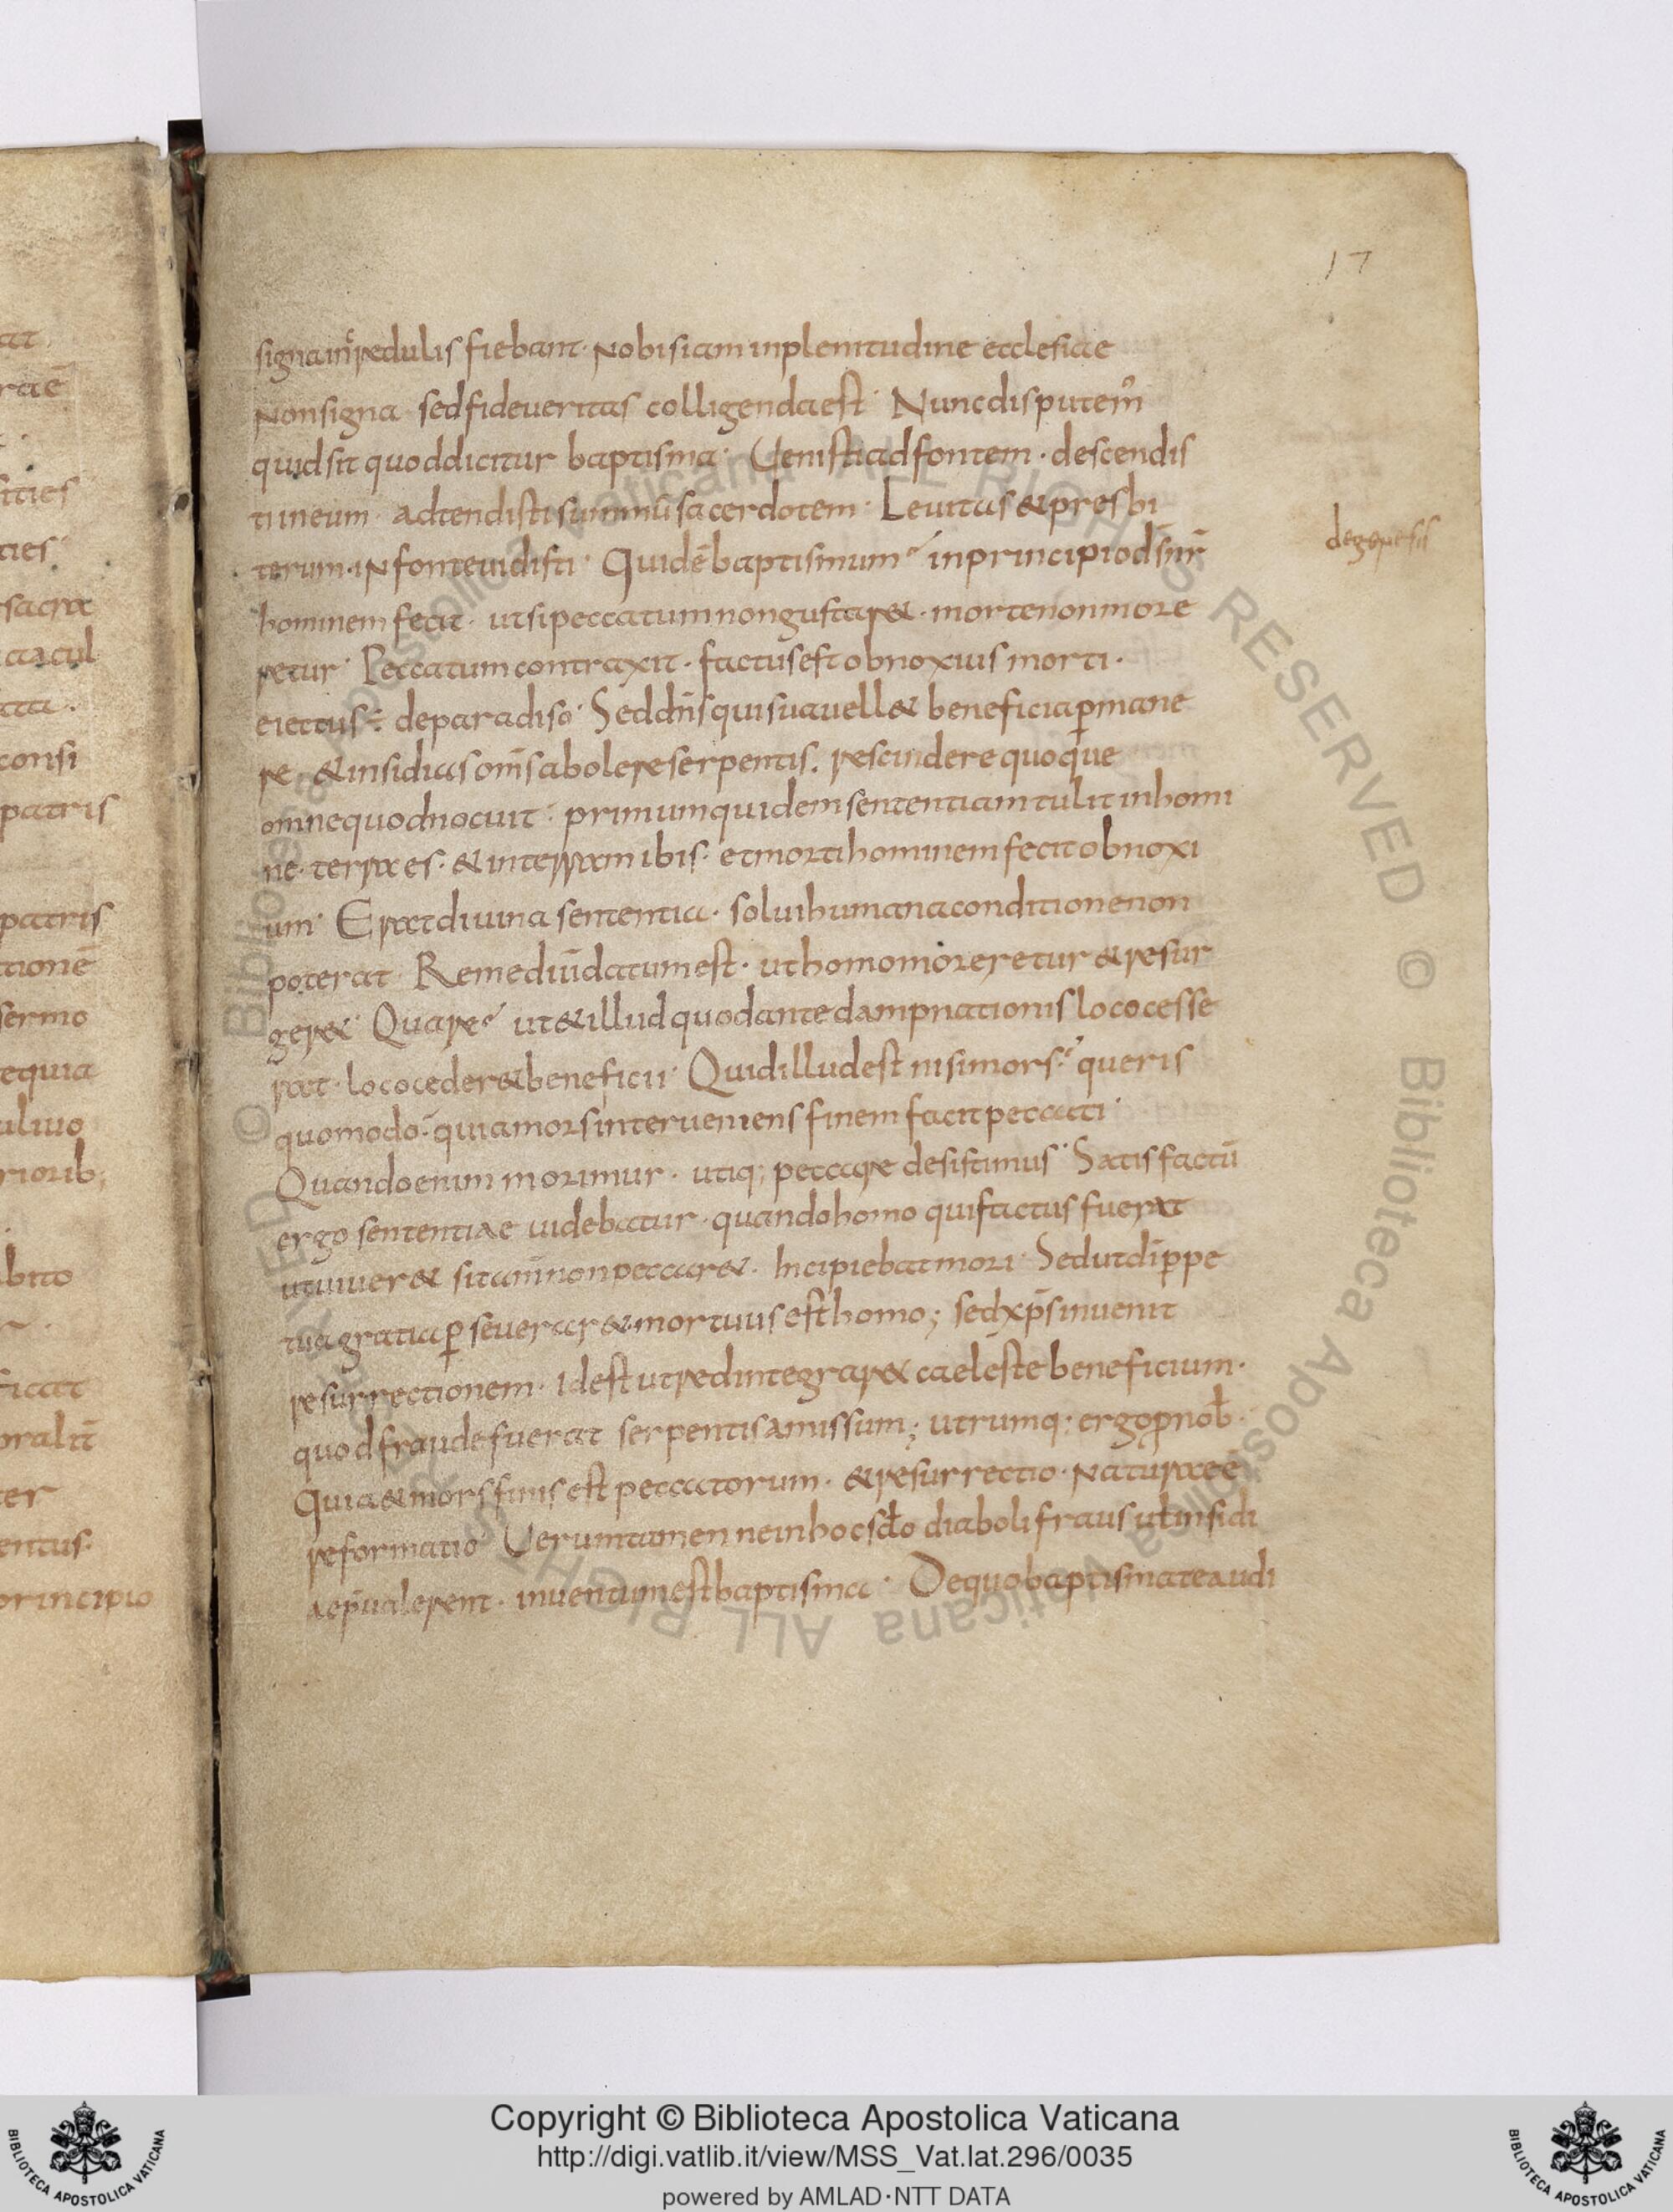 17
signa incredulis fiebant· Nobis iam in plenitudine ecclesiae
Non signa sed fide ueritas colligenda est· Nunc disputem᾿
quid sit quod dicitur baptisma· Uenisti ad fontem· descendis
ti in eum· adtendisti summū sacerdotem· Leuitas & presbi
terum· iN fonte uidisti· Quid ē baptismum? in principio ds̄ nr̄
degenesii
hominem fecit· ut si peccatum non gustar&· morte non more
retur· Peccatum contraxit· factus est obnoxius morti·
eiectus ÷ de paradiso· Sed dn̄s qui sua uell& beneficia ꝑmane
re· & insidias om̄s abolere serpentis. rescindere quoque
omne quod nocuit· primum quidem sententiam tulit in homi
ne· terra es· & in terram ibis· et morti hominem fecit obnoxi
um· Erat diuina sententia· solui humana conditione non
poterat· Remediū datum est· ut homo moreretur & resur
ger&· Quare? ut & illud quod ante dampnationis loco cesse
rat· loco ceder& beneficii· Quid illud est nisi mors? queris
quomodo· quia mors interueniens finem facit peccati·
Quando enim morimur· utiq; peccare desistimus· Satisfactū
ergo sententiae uidebatur· quando homo qui factus fuerat
ut uiuer& si tam̄ non peccar&· Incipiebat mori· Sed ut dī perpe
tua gratia ꝑseuerar& mortuus est homo; sed xp̄s inuenit
resurrectionem· Idest ut redintegrar& caeleste beneficium·
quod fraude fuerat serpentis amissum; utrumq; ergo ꝓ nob̄·
Quia & mors finis est peccatorum· & resurrectio· Naturae ē
reformatio· Uerumtamen ne in hoc scło diaboli fraus uł insidi
ae p̄ualerent· inuentum est baptisma· De quo baptismate audi
Copyright © Biblioteca Apostolica Vaticana
http://digi.vatlib.it/view/MSS_Vat.lat.296/0035
powered by AMLAD·NTT DATA
BIBLIOTECA APOSTOLICA VATICANA
BIBLIOTECA APOSTOLICA VATICANA